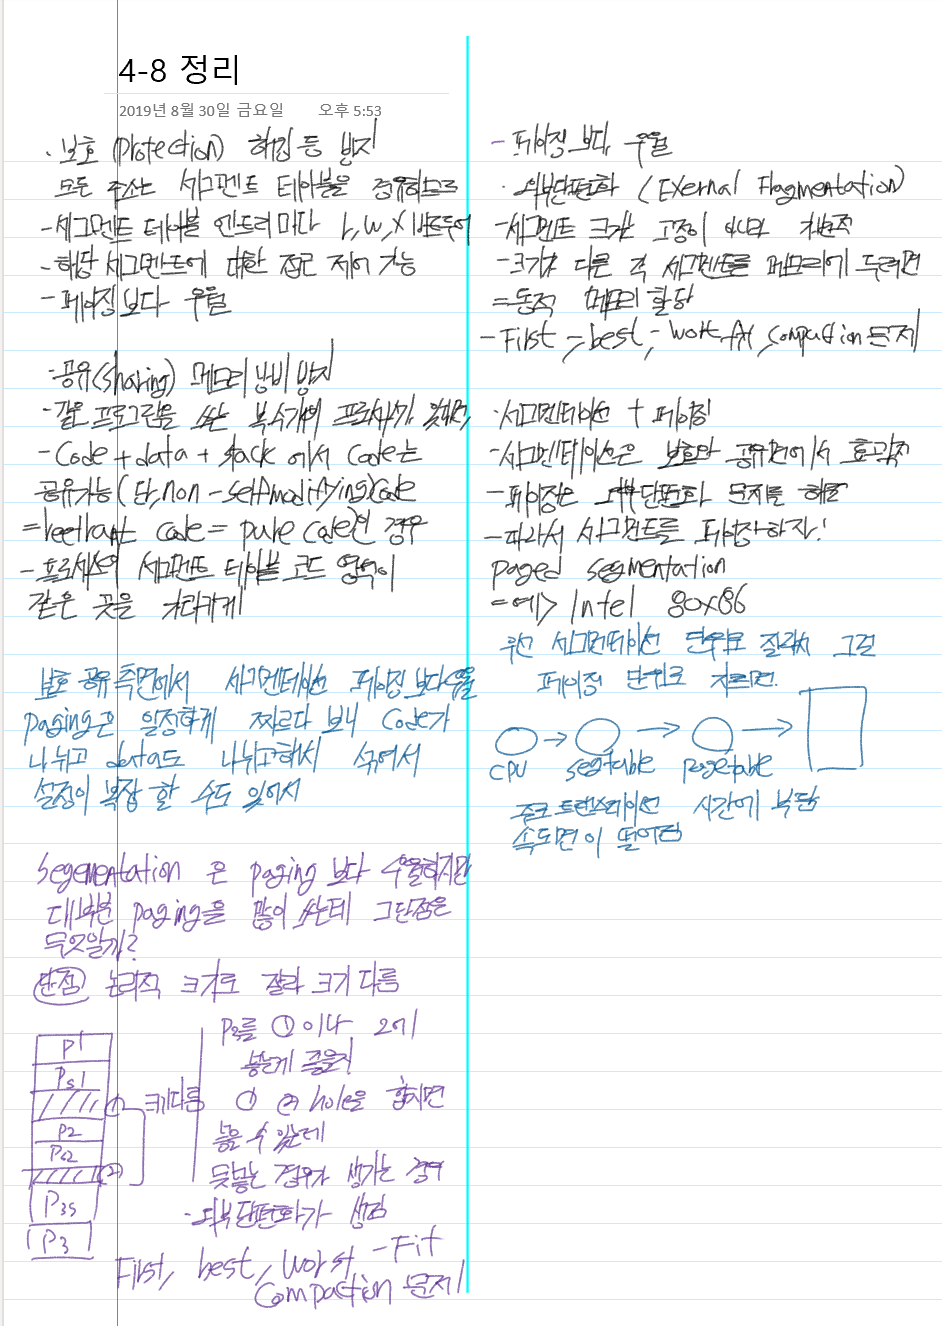 4-8 정리
2019년 8월 30일 금요일 오후 5:53
· 보호 (Protection) 해킹 등 방지
모든 주소는 세그먼트 테이블을 경유하므로
- 세그먼트 테이블 엔트리마다 r, w, x 비트두어
- 해당 세그먼트에 대한 접근 제어 가능
- 페이징보다 우월
· 공유(sharing) 메모리 낭비 방지
- 같은 프로그램을 쓰는 복수개의 프로세스가 있다면,
- Code + data + stack 에서 code는
공유가능 (단, non - self-modifying) code
= reetrant code = pure code인 경우
- 프로세스의 세그먼트 테이블 코드 영역이
같은 곳을 가리키게
보호 공유 측면에서 세그멘테이션 페이징 보다 우월
paging은 일정하게 찌르다 보니 code가
나뉘고 data도 나뉘고해서 섞여서
설정이 복잡 할 수도 있어서
Segementation 은 paging 보다 우월하지만
대부분 paging을 많이 쓰는데 그단점은
무엇일까?
단점 논리적 크기로 잘라 크기 다름
P1
Ps1
① 크기다름
P2
Ps2
②
P3s
P3
P3를 ① 이나 2에
넣는게 좋을지
① ② hole을 합치면
넣을 수 있는데
못넣는 경우가 생기는 경우
- 외부단편화가 생김
First, best, worst - Fit
Compaction 문제
- 페이징 보다 우월
· 외부단편화 (Exernal Fragmentation)
- 세그먼트 크기는 고정이 아니라 가변적
- 크기가 다른 각 세그먼트를 메모리에 두려면
= 동적 메모리 할당
- First -, best -, worst-fit, compaction 문제
· 세그멘테이션 + 페이징
- 세그멘테이션은 보호와 공유면에서 효과적
- 페이징은 외부단편화 문제를 해결
- 따라서 세그먼트를 페이징하자!
paged segmentation
= 예> Intel 80x86
우선 세그먼테이션 단위로 잘라서 그걸
페이징 단위로 자르면.
CPU segtable pagetable
주소 트랜스레이션 시간에 부담
속도면이 떨어짐